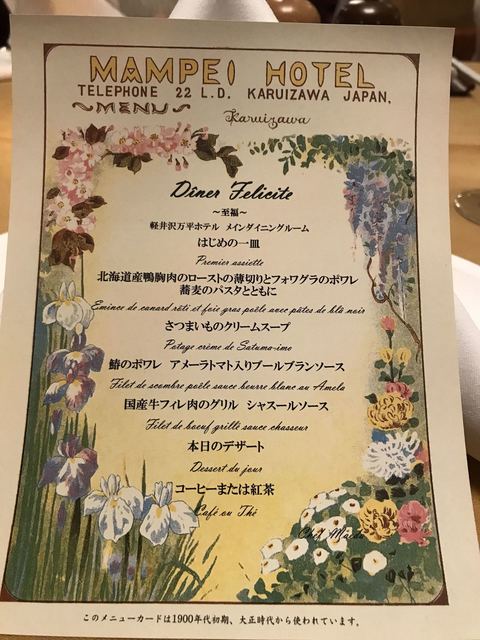 MAMPEI HOTEL
TELEPHONE 22 L.D. KARUIZAWA JAPAN.
MENU
Karuizawa
Dîner Felicite
～至福～
軽井沢万平ホテル メインダイニングルーム
はじめの一皿
Premier assiette
北海道産鴨胸肉のローストの薄切りとフォワグラのポワレ
蕎麦のパスタとともに
Emince de canard rôti et foie gras poêle avec pâtes de blé noir
さつまいものクリームスープ
Potage crème de Satuma-imo
鰆のポワレ アメーラトマト入りブールブランソース
Filet de scombre poêle sauce beurre blanc au Amela
国産牛フィレ肉のグリル シャスールソース
Filet de boeuf grillé sauce chasseur
本日のデザート
Dessert du jour
コーヒーまたは紅茶
Café ou Thé
Chef Maeda
このメニューカードは1900年代初期、大正時代から使われています。